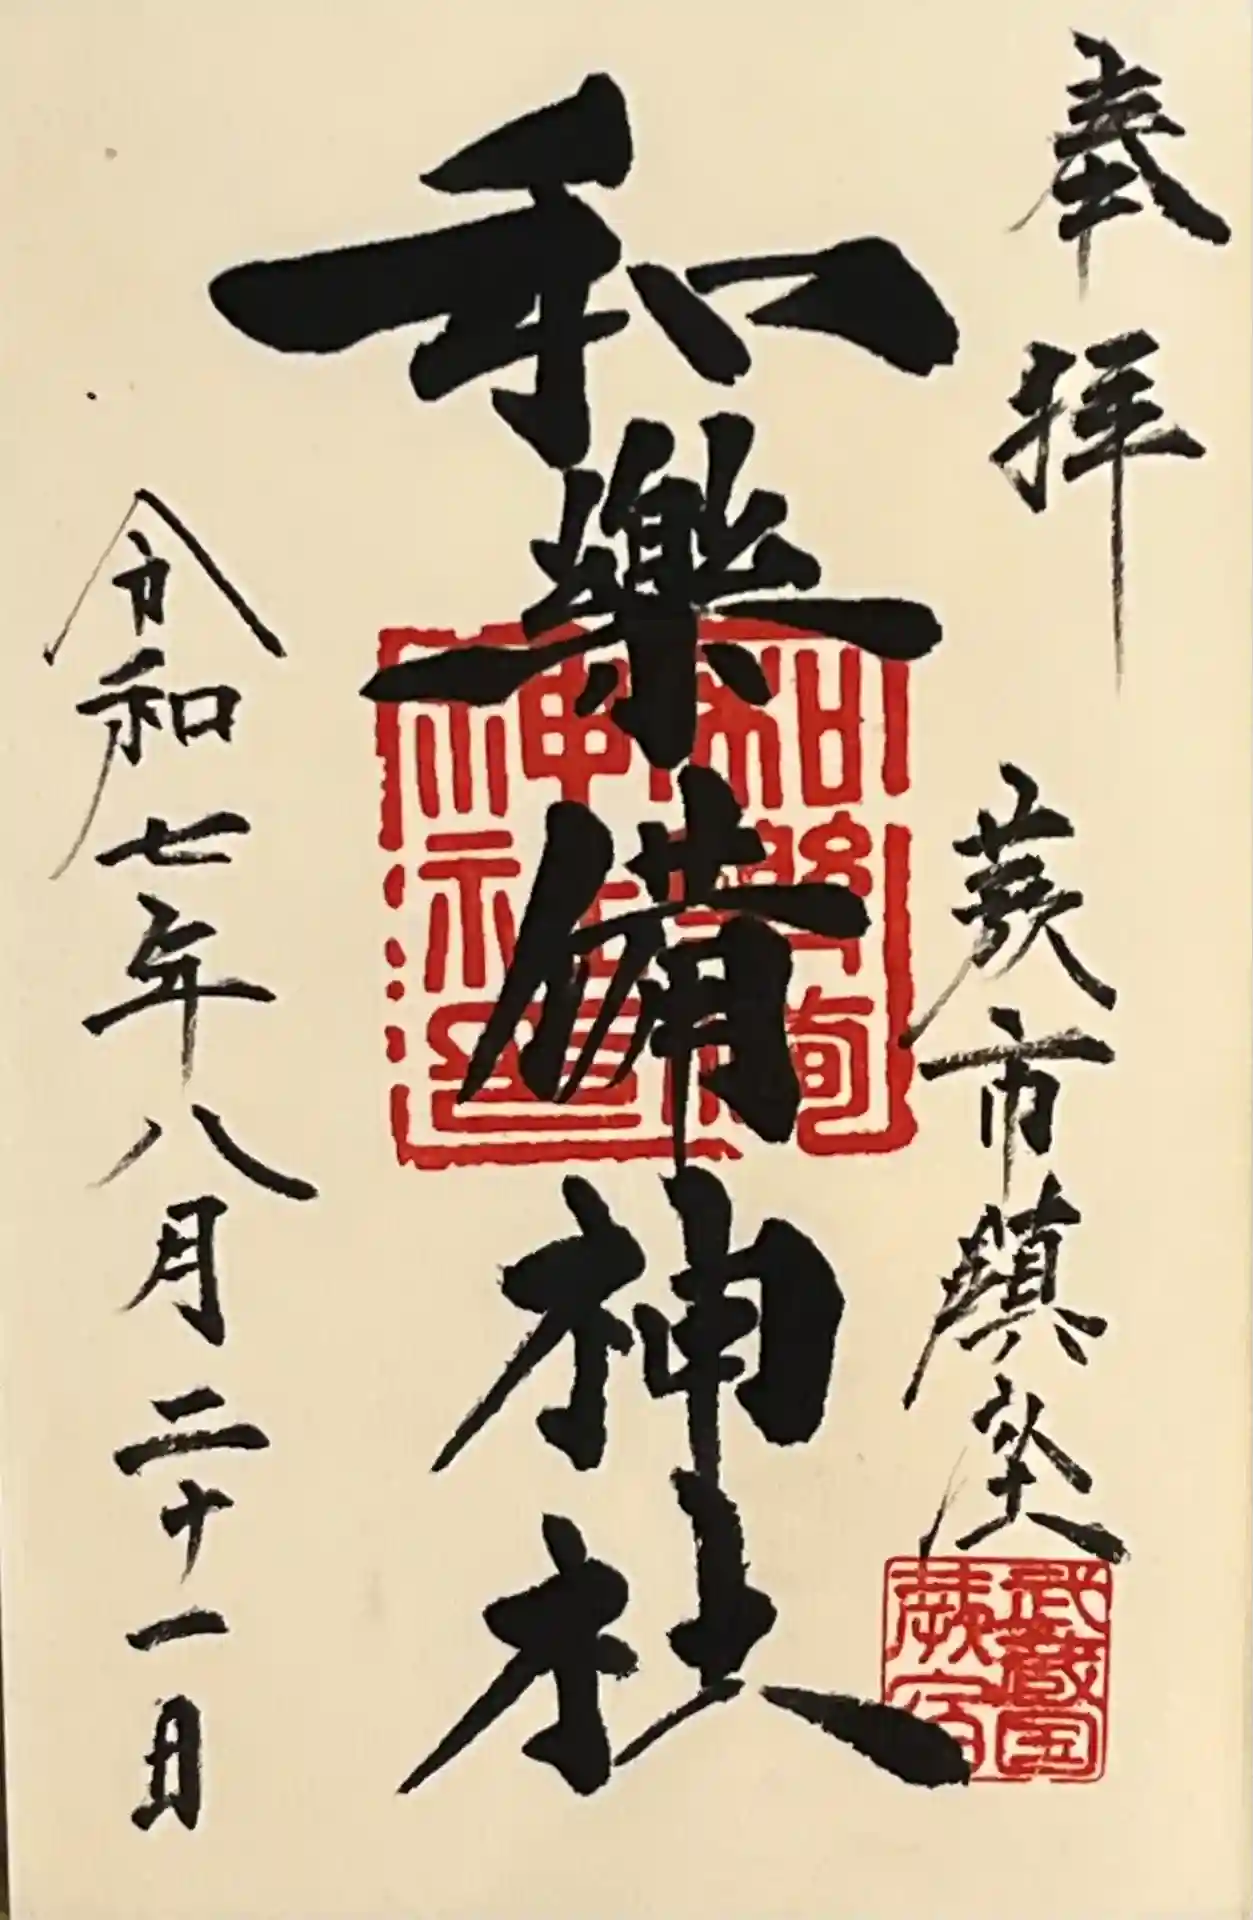 奉拝
蕨市鎮坐
武蔵国
蕨宿
和樂備神社
令和七年八月二十一日